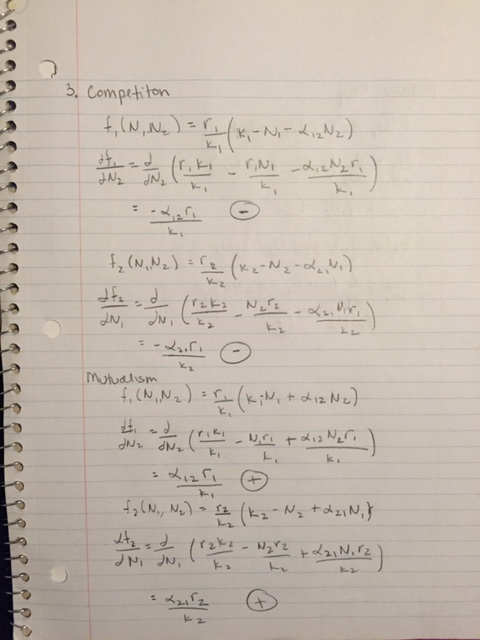 3. Competiton
f₁(N₁,N₂) = r₁/k₁ (k₁ - N₁ - α₁₂N₂)
df₁/dN₂ = d/dN₂ (r₁k₁/k₁ - r₁N₁/k₁ - α₁₂N₂r₁/k₁)
= -α₁₂r₁/k₁ ⊖
f₂(N₁,N₂) = r₂/k₂ (k₂ - N₂ - α₂₁N₁)
df₂/dN₁ = d/dN₁ (r₂k₂/k₂ - N₂r₂/k₂ - α₂₁N₁r₁/k₂)
= -α₂₁r₁/k₂ ⊖
Mutualism
f₁(N₁,N₂) = r₁/k₁ (k₁-N₁ + α₁₂N₂)
df₁/dN₂ = d/dN₂ (r₁k₁/k₁ - N₁r₁/k₁ + α₁₂N₂r₁/k₁)
= α₁₂r₁/k₁ ⊕
f₂(N₁, N₂) = r₂/k₂ (k₂ - N₂ + α₂₁N₁)
df₂/dN₁ = d/dN₁ (r₂k₂/k₂ - N₂r₂/k₂ + α₂₁N₁r₂/k₂)
= α₂₁r₂/k₂ ⊕